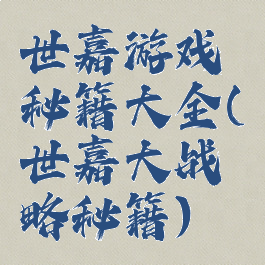 世嘉游戏
秘籍大全(
世嘉大战
略秘籍)